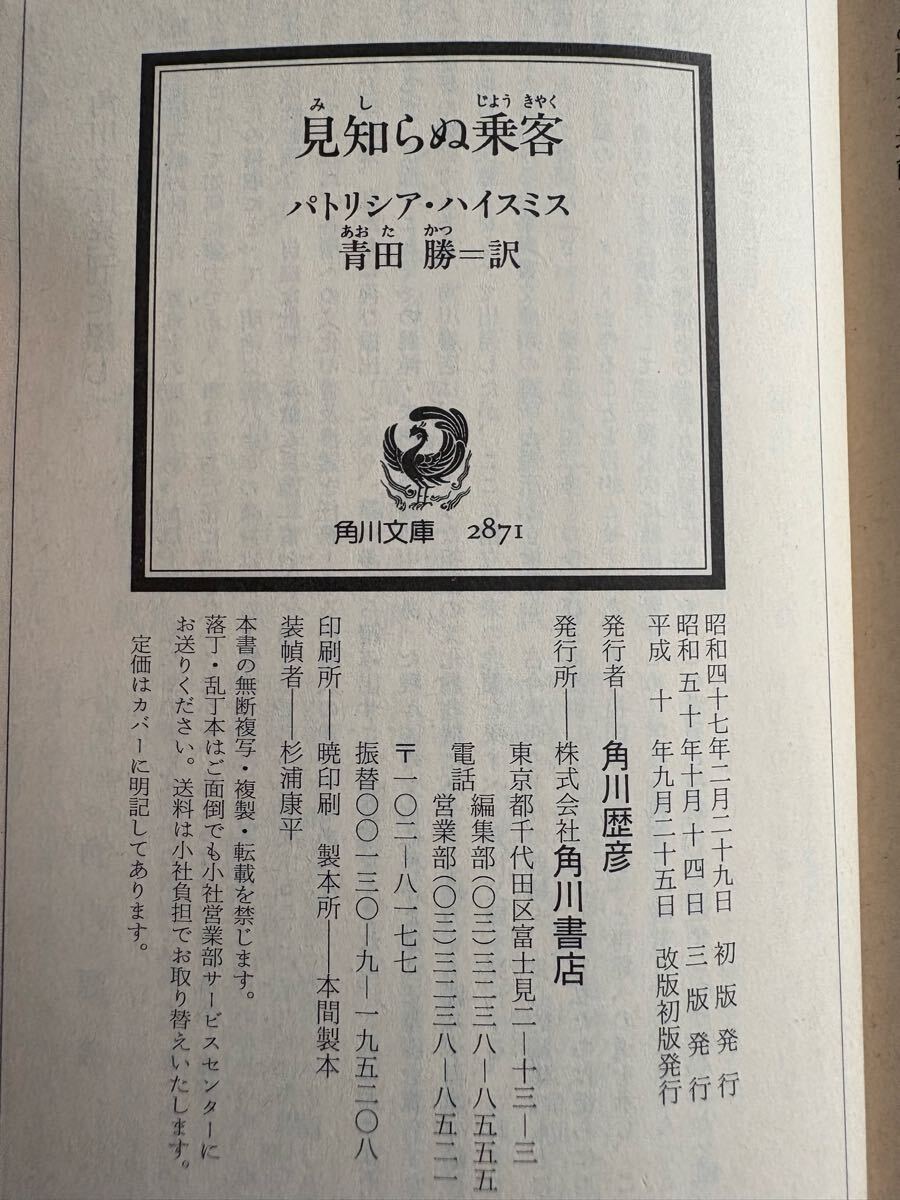 みし じようきやく
見知らぬ乗客
パトリシア・ハイスミス
あおた かつ
青田 勝＝訳
角川文庫 2871
昭和四十七年二月二十九日 初版発行
昭和五十年十月十四日 三版発行
平成十年九月二十五日 改版初版発行
発行者――角川歴彦
発行所――株式会社角川書店
東京都千代田区富士見二―十三―三
電話 編集部(〇三)三二三八―八五五五
営業部(〇三)三二三八―八五二一
〒一〇二―八一七七
振替〇〇一三〇―九―一九五二〇八
印刷所――暁印刷 製本所――本間製本
装幀者――杉浦康平
本書の無断複写・複製・転載を禁じます。
落丁・乱丁本はご面倒でも小社営業部サービスセンターに
お送りください。送料は小社負担でお取り替えいたします。
定価はカバーに明記してあります。